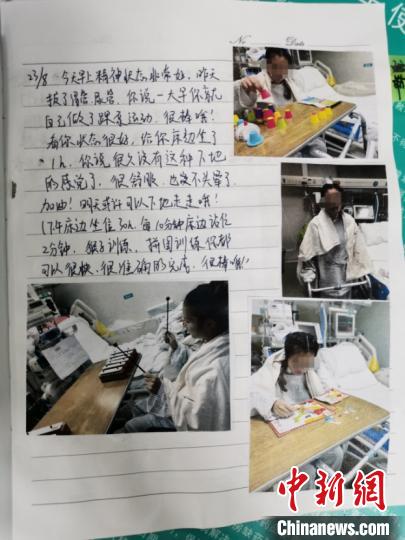 No.
Date
23/8 今天早上精神状态非常好，昨天
拔了胃管、尿管，你说一大早你就
自己做了踝泵运动，很棒啥！
看你状态很好，给你床边坐了
1h，你说，很久没有这种下地
的感觉了，很舒服，也完全不头晕了，
加油！明天或许可以下地走走啥！
下午床边坐位30min，每10分钟床边站位
2分钟，认知训练、拼图训练你都
可以很快、很准确的完成，很棒啥！
中新网
Chinanews.com